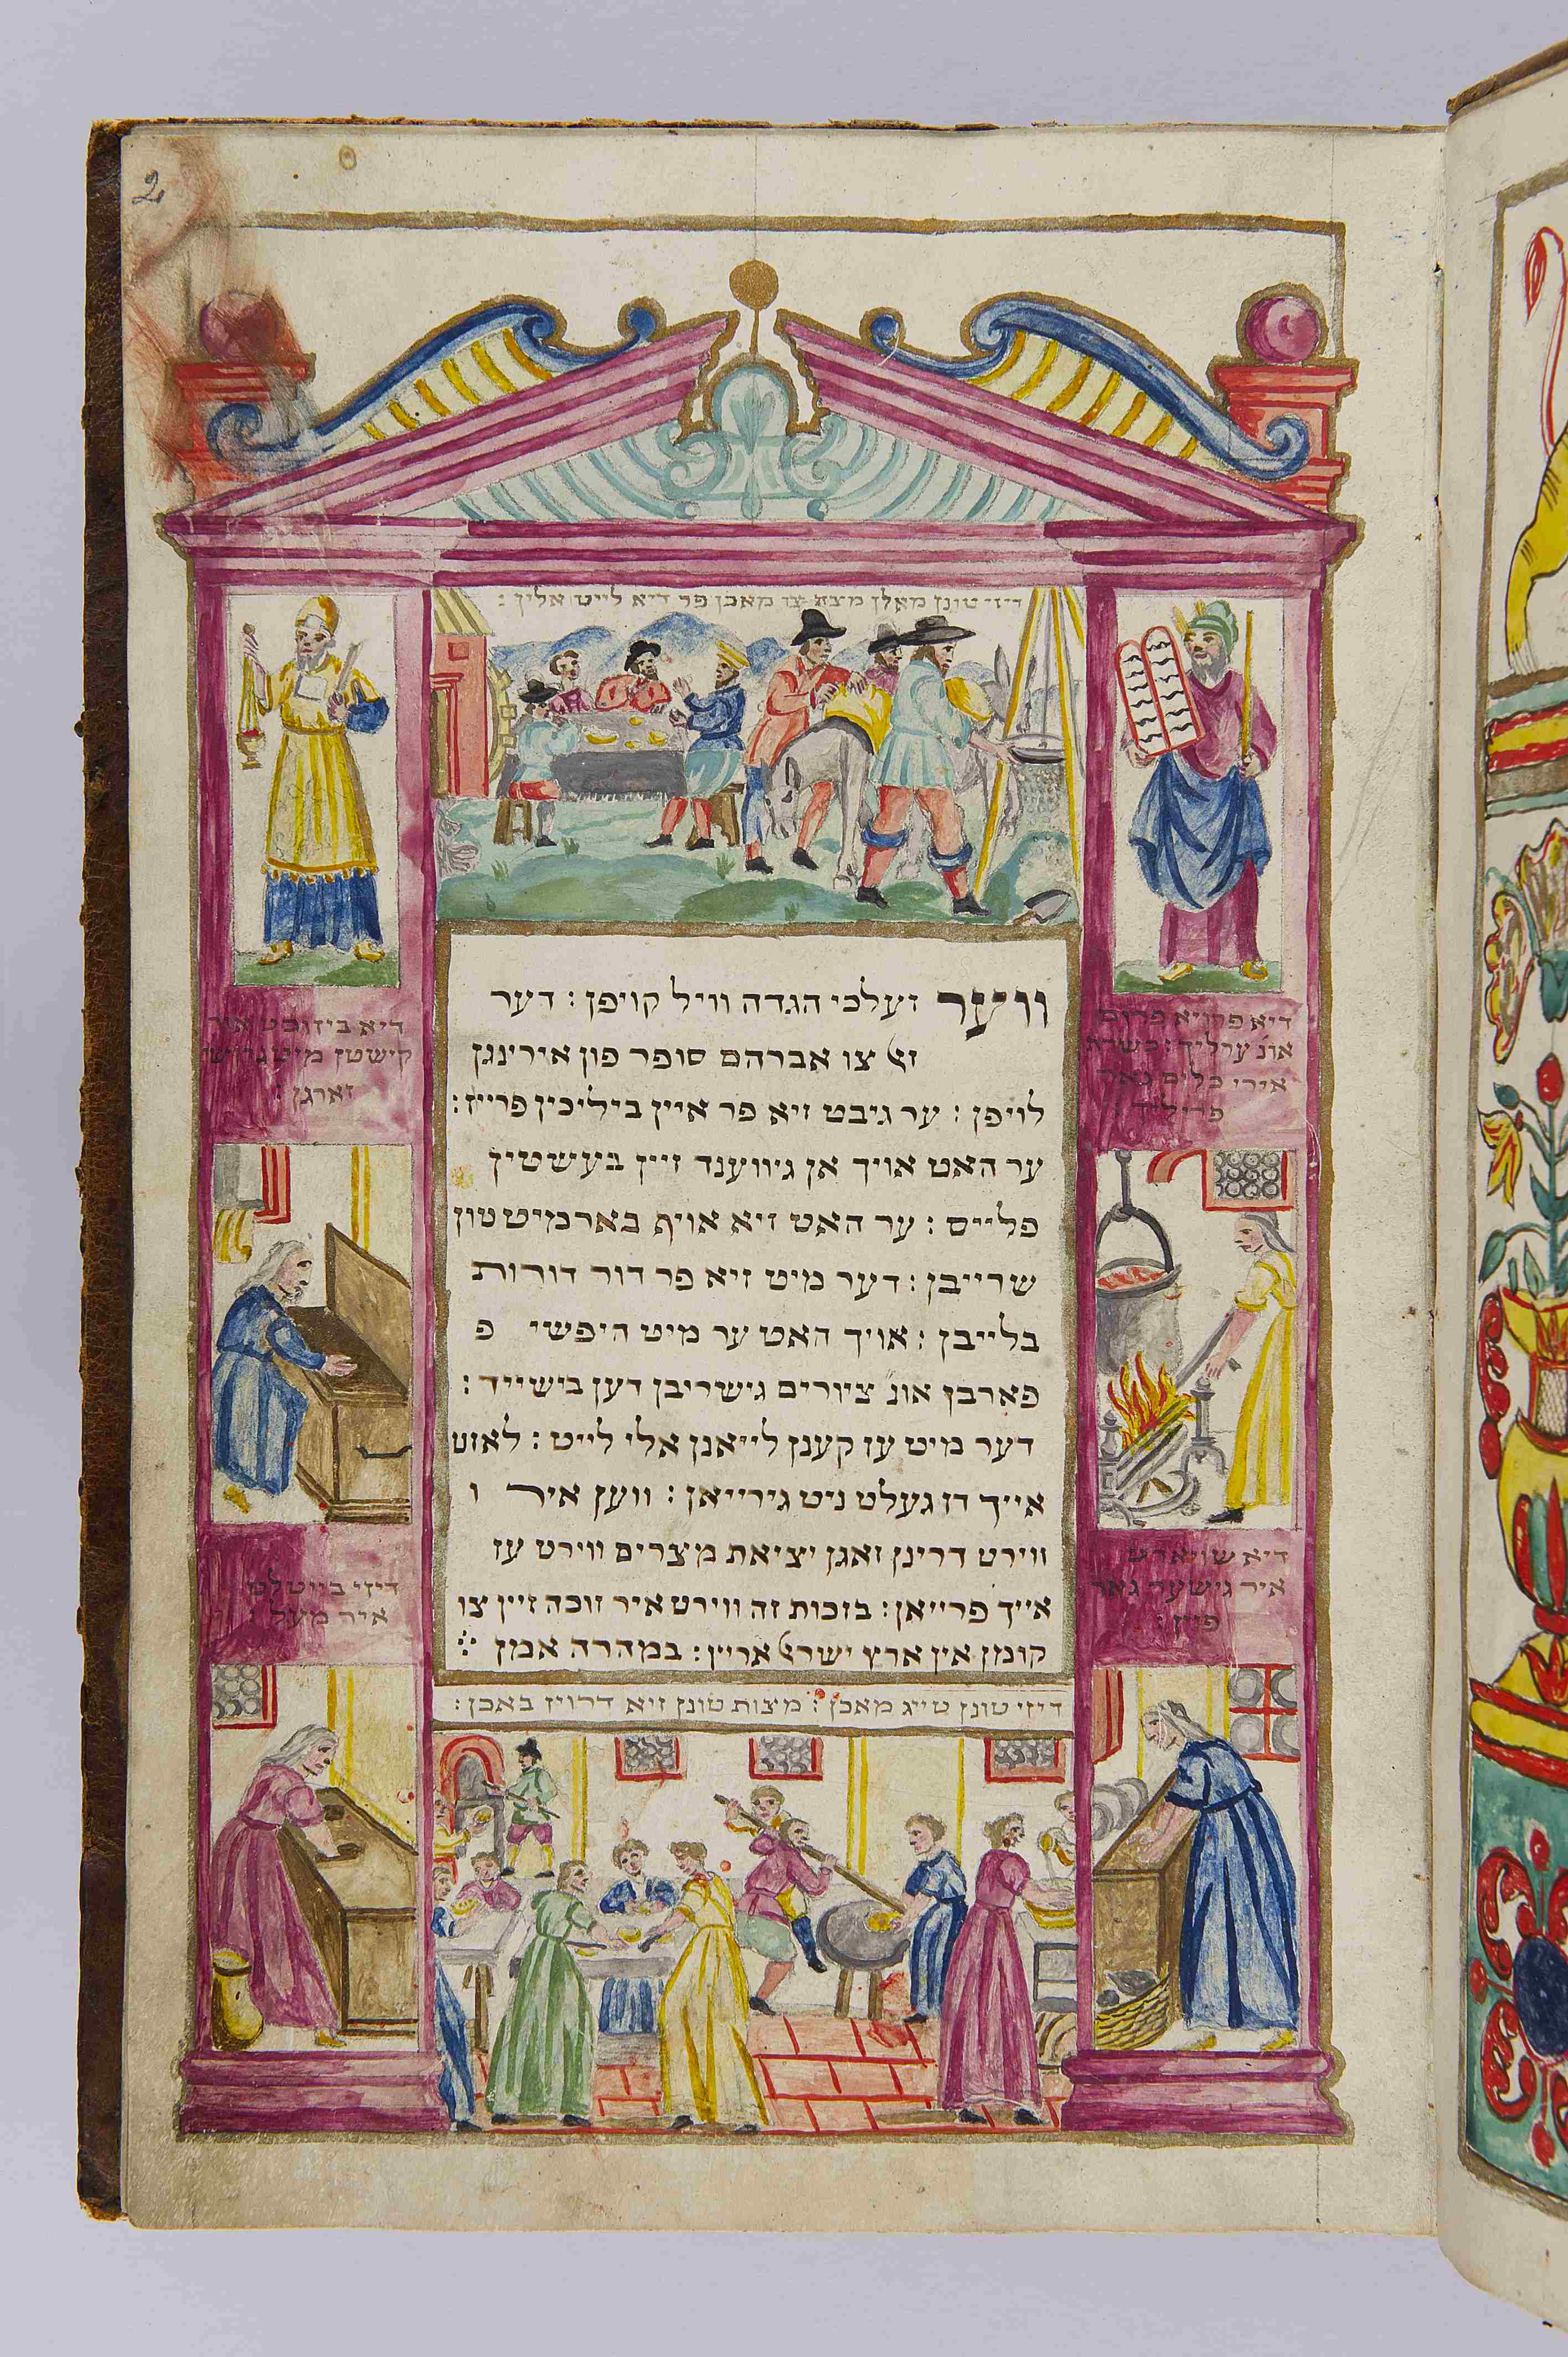 2
דיזי טונן מאלן מצה צו מאכן פר דיא לייט אליך :
ווער זעלכי הגדה וויל קויפן : דער
זﭏ צו אברהם סופר פון אירינגן
לויפן : ער גיבט זיא פר איין ביליכין פרייז :
ער האט אויך אן גיווענד זיין בעשטין
פלייס : ער האט זיא אויף בארמיט טון
שרייבן : דער מיט זיא פר דור דורות
בלייבן : אויך האט ער מיט היפשי פ
פארבן אונ ציורים גישריבן דען בישייד :
דער מיט עז קענן לייאנן אלי לייט : לאזט
אייך דז געלט ניט גירייאן : ווען איר ו
ווירט דרינן זאגן יציאת מצרים ווירט עז
אייך פרייאן : בזכות זה ווירט איר זוכה זיין צו
קומן אין ארץ ישרﭏ אריין : במהרה אמן
דיזי טונן טייג מאכן : מצות טונן זיא דרויז באכן :
דיא פרויא פרום
אונ ערליך : כשרת
אירי כלים גאר
פרילך :
דיא שויארט
איר גישער גאר
פיין :
דיא ביזוכט איר
קישטן מיט גרושי
זארגן :
דיזי בייטלט
איר מעל :